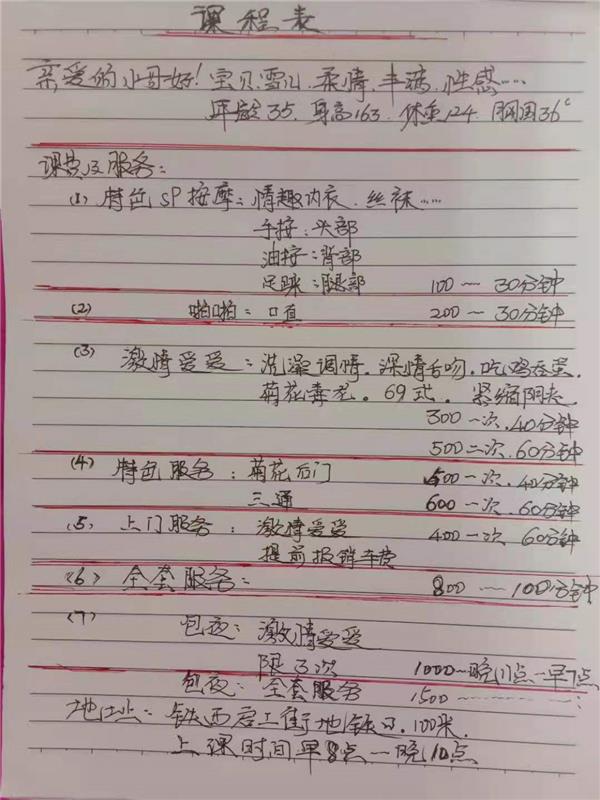 课程表
亲爱的小哥好！宝贝雪儿.柔情.丰满.性感……
年龄35.身高163.体重124.胸围36c
课费及服务：
(1) 特色SP按摩：情趣内衣.丝袜……
手按：头部
油按：背部
足踩：腿部 100 — 30分钟
(2) 啪啪：口值 200 — 30分钟
(3) 激情爱爱：洗澡调情.深情舌吻.吃鸡吞蛋.
菊花毒龙。69式.紧缩阴夹.
300一次.40分钟
500二次.60分钟
(4) 特色服务：菊花后门 500一次.40分钟
三通 600一次.60分钟
(5) 上门服务：激情爱爱 400一次 60分钟
提前报销车费
(6) 全套服务： 800 — 100分钟
(7) 包夜：激情爱爱
限3次 1000—晚11点—早7点
包夜：全套服务 1500…………
地址：铁西区工街地铁口.100米.
上课时间早8点—晚10点